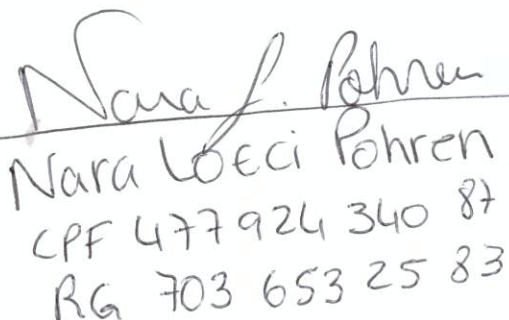 Nara L. Pohren
Nara Locci Pohren
CPF 477 924 340 87
RG 703 653 25 83